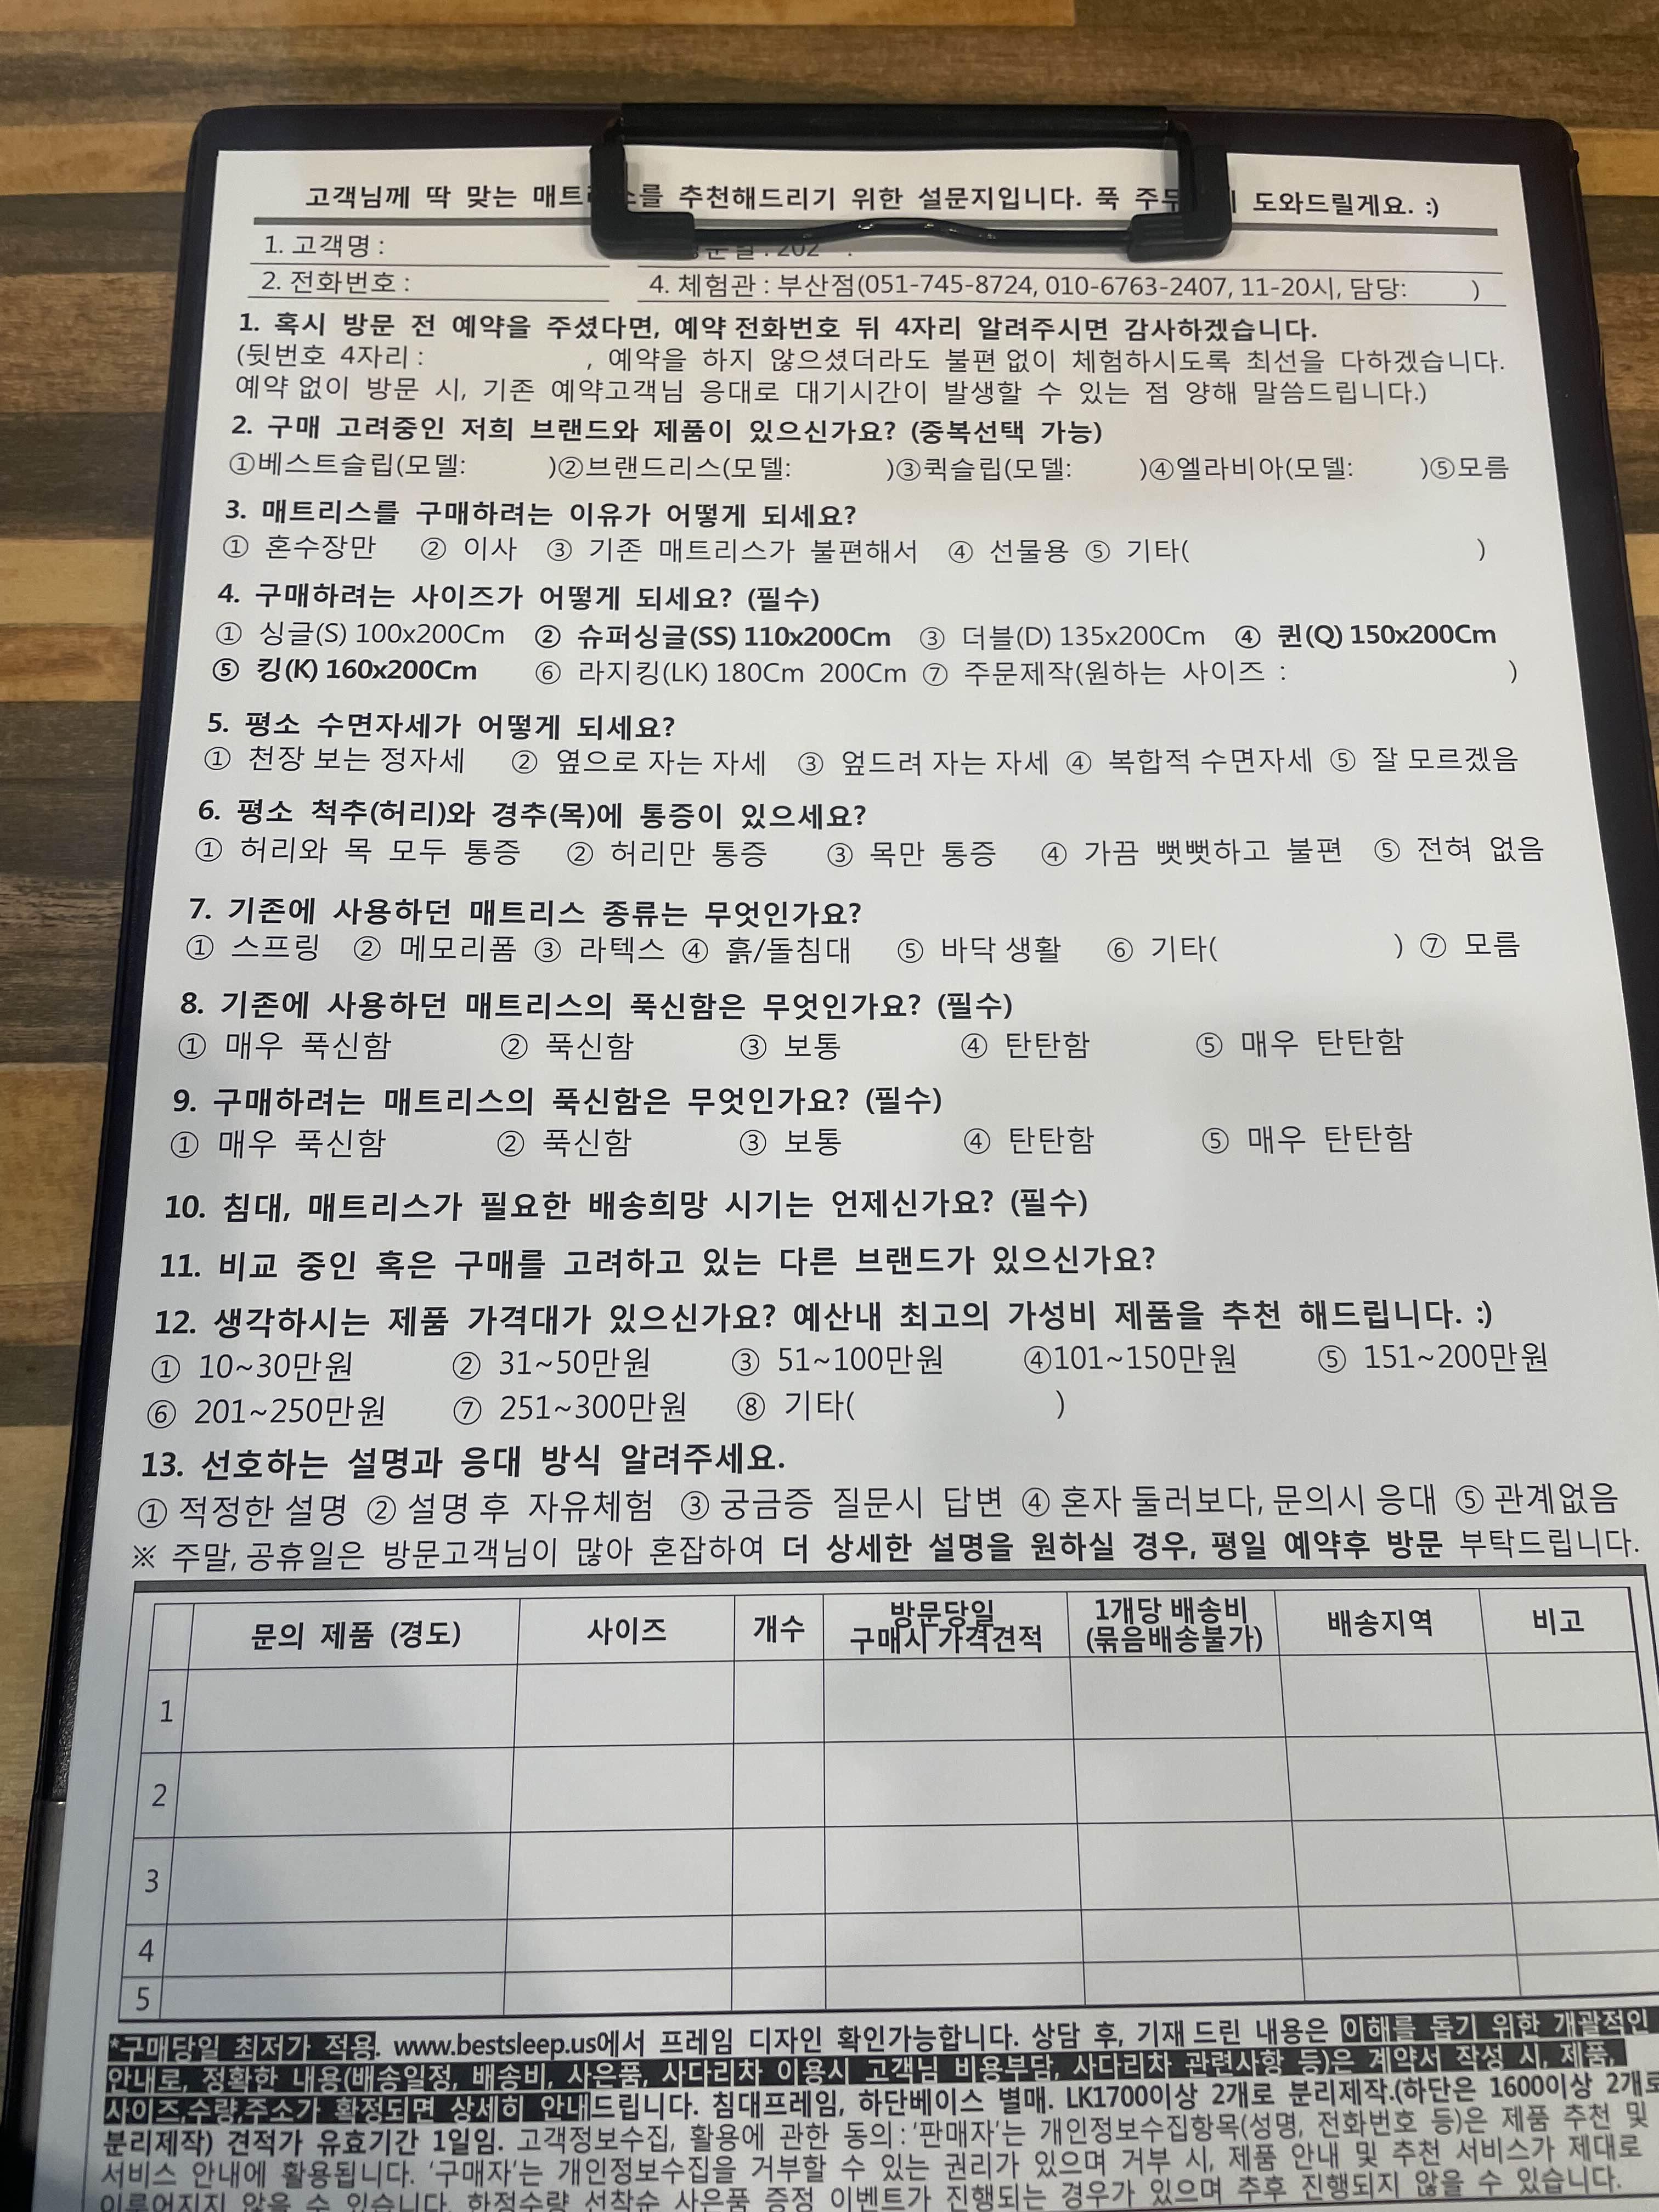 고객님께 딱 맞는 를 추천해드리기 위한 설문지입니다. 푹 도와드릴게요. :)
1. 고객명 :
: 202 .
2. 전화번호 :
4. 체험관 : 부산점(051-745-8724, 010-6763-2407, 11-20시, 담당: )
1. 혹시 방문 전 예약을 주셨다면, 예약 전화번호 뒤 4자리 알려주시면 감사하겠습니다.
(뒷번호 4자리 : , 예약을 하지 않으셨더라도 불편 없이 체험하시도록 최선을 다하겠습니다.
예약 없이 방문 시, 기존 예약고객님 응대로 대기시간이 발생할 수 있는 점 양해 말씀드립니다.)
2. 구매 고려중인 저희 브랜드와 제품이 있으신가요? (중복선택 가능)
①베스트슬립(모델: )②브랜드리스(모델: )③퀵슬립(모델: )④엘라비아(모델: )⑤모름
3. 매트리스를 구매하려는 이유가 어떻게 되세요?
① 혼수장만 ② 이사 ③ 기존 매트리스가 불편해서 ④ 선물용 ⑤ 기타( )
4. 구매하려는 사이즈가 어떻게 되세요? (필수)
① 싱글(S) 100x200Cm ② 슈퍼싱글(SS) 110x200Cm ③ 더블(D) 135x200Cm ④ 퀸(Q) 150x200Cm
⑤ 킹(K) 160x200Cm ⑥ 라지킹(LK) 180Cm 200Cm ⑦ 주문제작(원하는 사이즈 : )
5. 평소 수면자세가 어떻게 되세요?
① 천장 보는 정자세 ② 옆으로 자는 자세 ③ 엎드려 자는 자세 ④ 복합적 수면자세 ⑤ 잘 모르겠음
6. 평소 척추(허리)와 경추(목)에 통증이 있으세요?
① 허리와 목 모두 통증 ② 허리만 통증 ③ 목만 통증 ④ 가끔 뻣뻣하고 불편 ⑤ 전혀 없음
7. 기존에 사용하던 매트리스 종류는 무엇인가요?
① 스프링 ② 메모리폼 ③ 라텍스 ④ 흙/돌침대 ⑤ 바닥 생활 ⑥ 기타( ) ⑦ 모름
8. 기존에 사용하던 매트리스의 푹신함은 무엇인가요? (필수)
① 매우 푹신함 ② 푹신함 ③ 보통 ④ 탄탄함 ⑤ 매우 탄탄함
9. 구매하려는 매트리스의 푹신함은 무엇인가요? (필수)
① 매우 푹신함 ② 푹신함 ③ 보통 ④ 탄탄함 ⑤ 매우 탄탄함
10. 침대, 매트리스가 필요한 배송희망 시기는 언제신가요? (필수)
11. 비교 중인 혹은 구매를 고려하고 있는 다른 브랜드가 있으신가요?
12. 생각하시는 제품 가격대가 있으신가요? 예산내 최고의 가성비 제품을 추천 해드립니다. :)
① 10~30만원 ② 31~50만원 ③ 51~100만원 ④101~150만원 ⑤ 151~200만원
⑥ 201~250만원 ⑦ 251~300만원 ⑧ 기타( )
13. 선호하는 설명과 응대 방식 알려주세요.
① 적정한 설명 ② 설명 후 자유체험 ③ 궁금증 질문시 답변 ④ 혼자 둘러보다, 문의시 응대 ⑤ 관계없음
※ 주말, 공휴일은 방문고객님이 많아 혼잡하여 더 상세한 설명을 원하실 경우, 평일 예약후 방문 부탁드립니다.
문의 제품 (경도) 사이즈 개수 방문당일 구매시 가격견적 1개당 배송비 (묶음배송불가) 배송지역 비고
1
2
3
4
5
*구매당일 최저가 적용. www.bestsleep.us에서 프레임 디자인 확인가능합니다. 상담 후, 기재 드린 내용은 이해를 돕기 위한 개괄적인
안내로, 정확한 내용(배송일정, 배송비, 사은품, 사다리차 이용시 고객님 비용부담, 사다리차 관련사항 등)은 계약서 작성 시, 제품,
사이즈,수량,주소가 확정되면 상세히 안내드립니다. 침대프레임, 하단베이스 별매. LK1700이상 2개로 분리제작.(하단은 1600이상 2개로
분리제작) 견적가 유효기간 1일임. 고객정보수집, 활용에 관한 동의 : '판매자'는 개인정보수집항목(성명, 전화번호 등)은 제품 추천 및
서비스 안내에 활용됩니다. '구매자'는 개인정보수집을 거부할 수 있는 권리가 있으며 거부 시, 제품 안내 및 추천 서비스가 제대로
이루어지지 않을 수 있습니다. 한정수량 선착순 사은품 증정 이벤트가 진행되는 경우가 있으며 추후 진행되지 않을 수 있습니다.